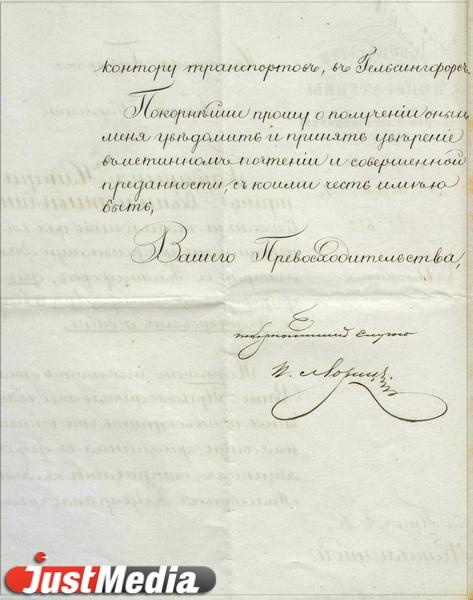 контору транспортовъ, въ Гельсингфорсъ.
Покорнѣйши прошу о получении оныхъ
меня увѣдомить и принять увѣреніе
въ истинномъ почтеніи и совершенной
преданности, съ коими честь имѣю
быть,
Вашего Превосходительства,
покорнѣйшій слуга
JustMedia